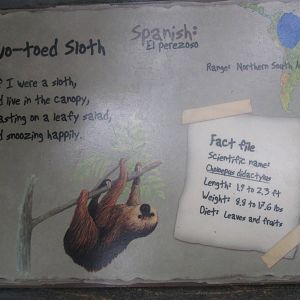 wo-toed Sloth
Spanish:
El perezoso
Range: Northern South A
f I were a sloth,
d live in the canopy,
asting on a leafy salad,
d snoozing happily.
Fact file
Scientific name:
Choloepus didactylus
Length: 1.9 to 2.3 ft
Weight: 8.8 to 17.6 lbs
Diet: Leaves and fruits